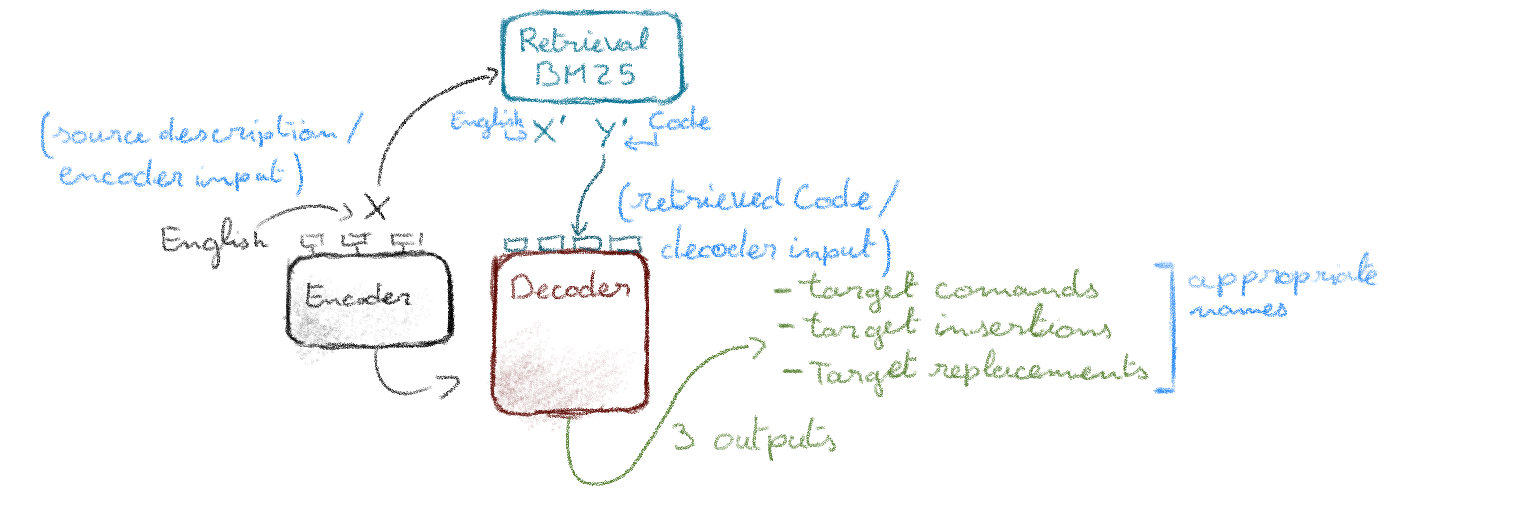 Retrieval
BM25
English X' Y' Code
(source description /
encoder input)
X
English
(retrieved Code /
decoder input)
Encoder
Decoder
- target comands
- target insertions
- Target replacements
appropriate
names
3 outputs